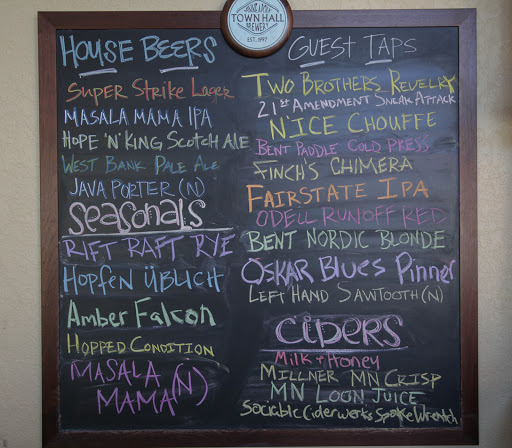 TOWN HALL
BREWERY
EST. 1997
HOUSE BEERS
SUPER STRIKE LAGER
MASALA MAMA IPA
HOPE 'N' KING SCOTCH ALE
WEST BANK PALE ALE
JAVA PORTER (N)
SEASONALS
RIFT RAFT RYE
HOPFEN ÜBLICH
Amber Falcon
HOPPED CONDITION
MASALA
MAMA (N)
GUEST TAPS
TWO BROTHERS REVELRY
21st AMENDMENT SNEAK ATTACK
N'ICE CHOUFFE
BENT PADDLE COLD PRESS
FINCH'S CHIMERA
FAIRSTATE IPA
ODELL RUNOFF RED
BENT NORDIC BLONDE
OSKAR BLUES Pinner
LEFT HAND SAWTOOTH (N)
CIDERS
Milk + Honey
MILLNER MN CRISP
MN LOON JUICE
Sociable Ciderwerks Spoke Wrench